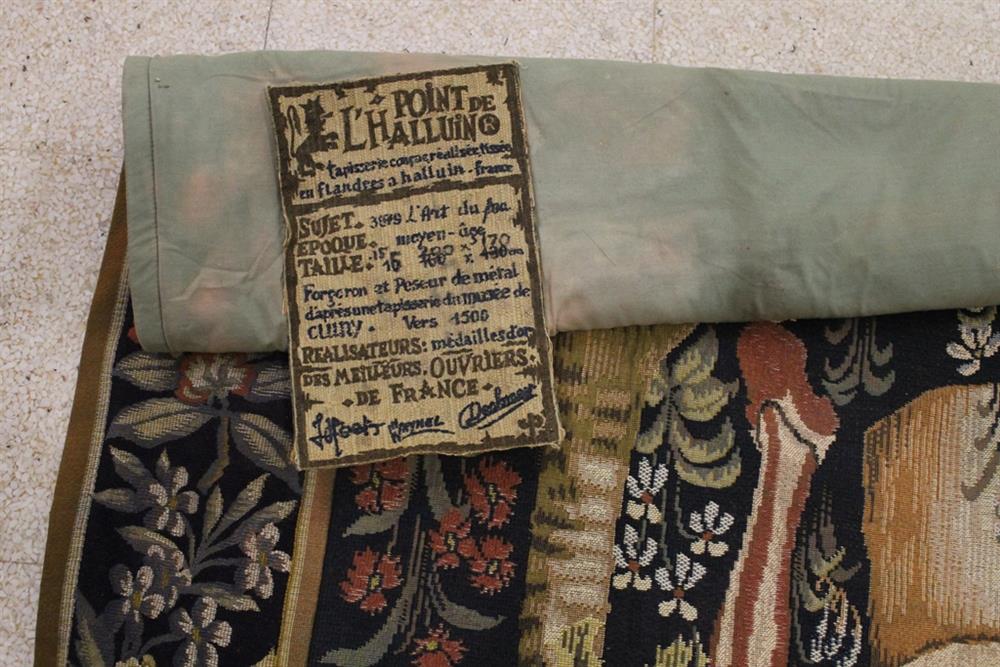 POINT DE
L'HALLUIN®
tapisserie conçue réalisée, tissée
en flandres a halluin - france
SUJET. 3979 L'Art du feu
EPOQUE. moyen-âge
TAILLE. 200 x 170
Forgeron et Peseur de métal
d'après une tapisserie du musée de
CLUNY. Vers 1500
REALISATEURS: médailles d'or
DES MEILLEURS OUVRIERS
DE FRANCE